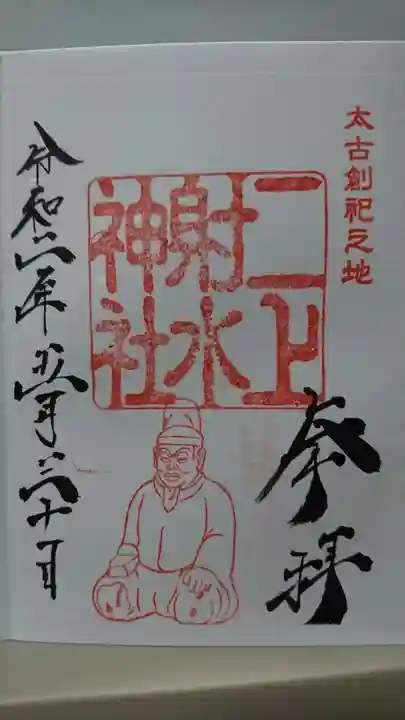 太古創祀之地
奉拝
二上
射水
神社
令和六年五月三十一日